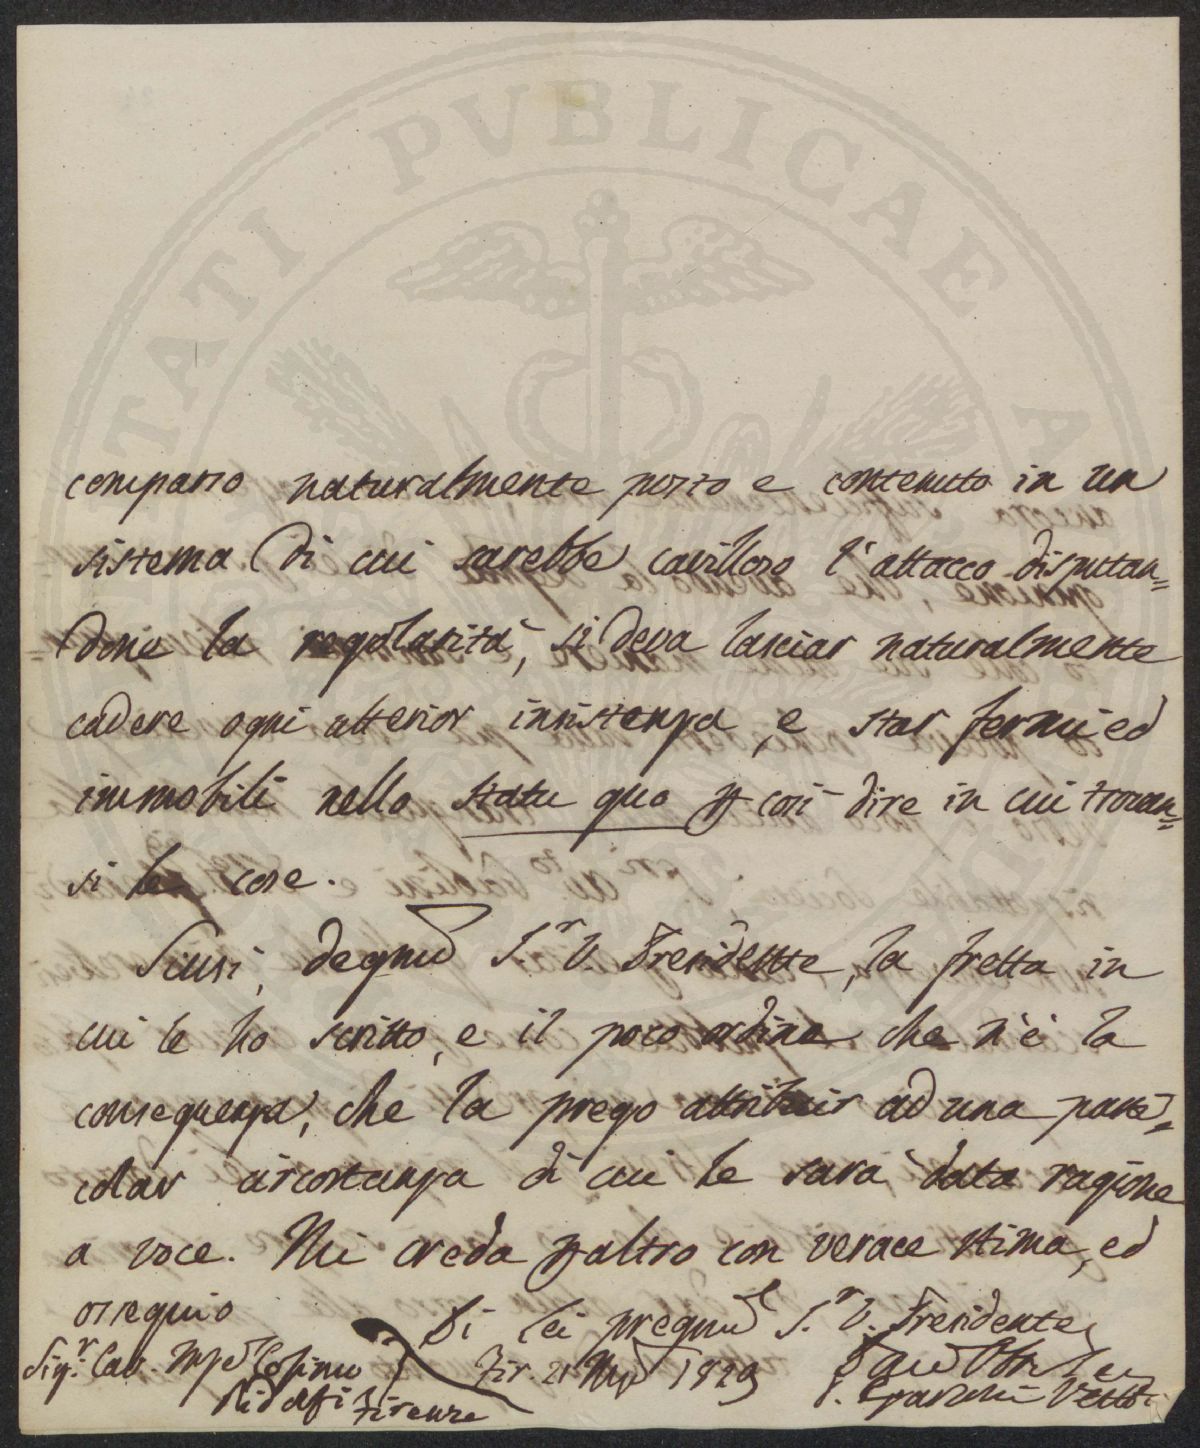 PUBLICAE
comparso naturalmente posto e contenuto in un
sistema di cui sarebbe cavilloso l'attacco disputan=
done la regolarità, si deva lasciar naturalmente
cadere ogni ulterior insistenza, e star fermi ed
immobili nello statu quo p così dire in cui trovan=
si le cose.
Scusi, degnmo S.r V. Presidente, la fretta in
cui le ho scritto, e il poco ordine che n'è la
conseguenza, che la prego attribuir ad una parti=
colar circostanza di cui le sarà data ragione
a voce. Mi creda p altro con verace stima, ed
ossequio
Di Lei pregmo S.r V. Presidente
Sig.r Cav. Cosimo
Ridolfi Firenze
Fir. 21 1829